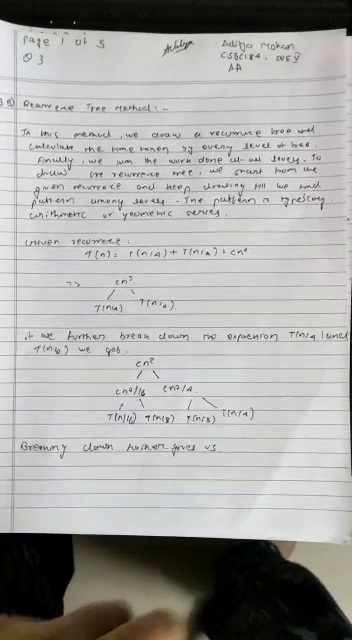 Page 1 of 5
Aditya Mohan
Q3
CSBC184. sec V
AA
Recurrence Tree Method: -
In this method, we draw a recurrence tree and
calculate the time taken by every level of tree.
Finally, we sum the work done at all levels. To
draw the recurrence tree, we start from the
given recurrence and keep drawing till we find
pattern among levels. The pattern is typically
arithmetic or geometric series.
Given recurrence:
T(n) = T(n/4) + T(n/2) + cn²
=> cn²
T(n/4) T(n/2).
if we further break down the expression T(n/4) and
T(n/2) we get.
cn²
cn²/16 cn²/4
T(n/16) T(n/8) T(n/8) T(n/4)
Breaking down further gives us